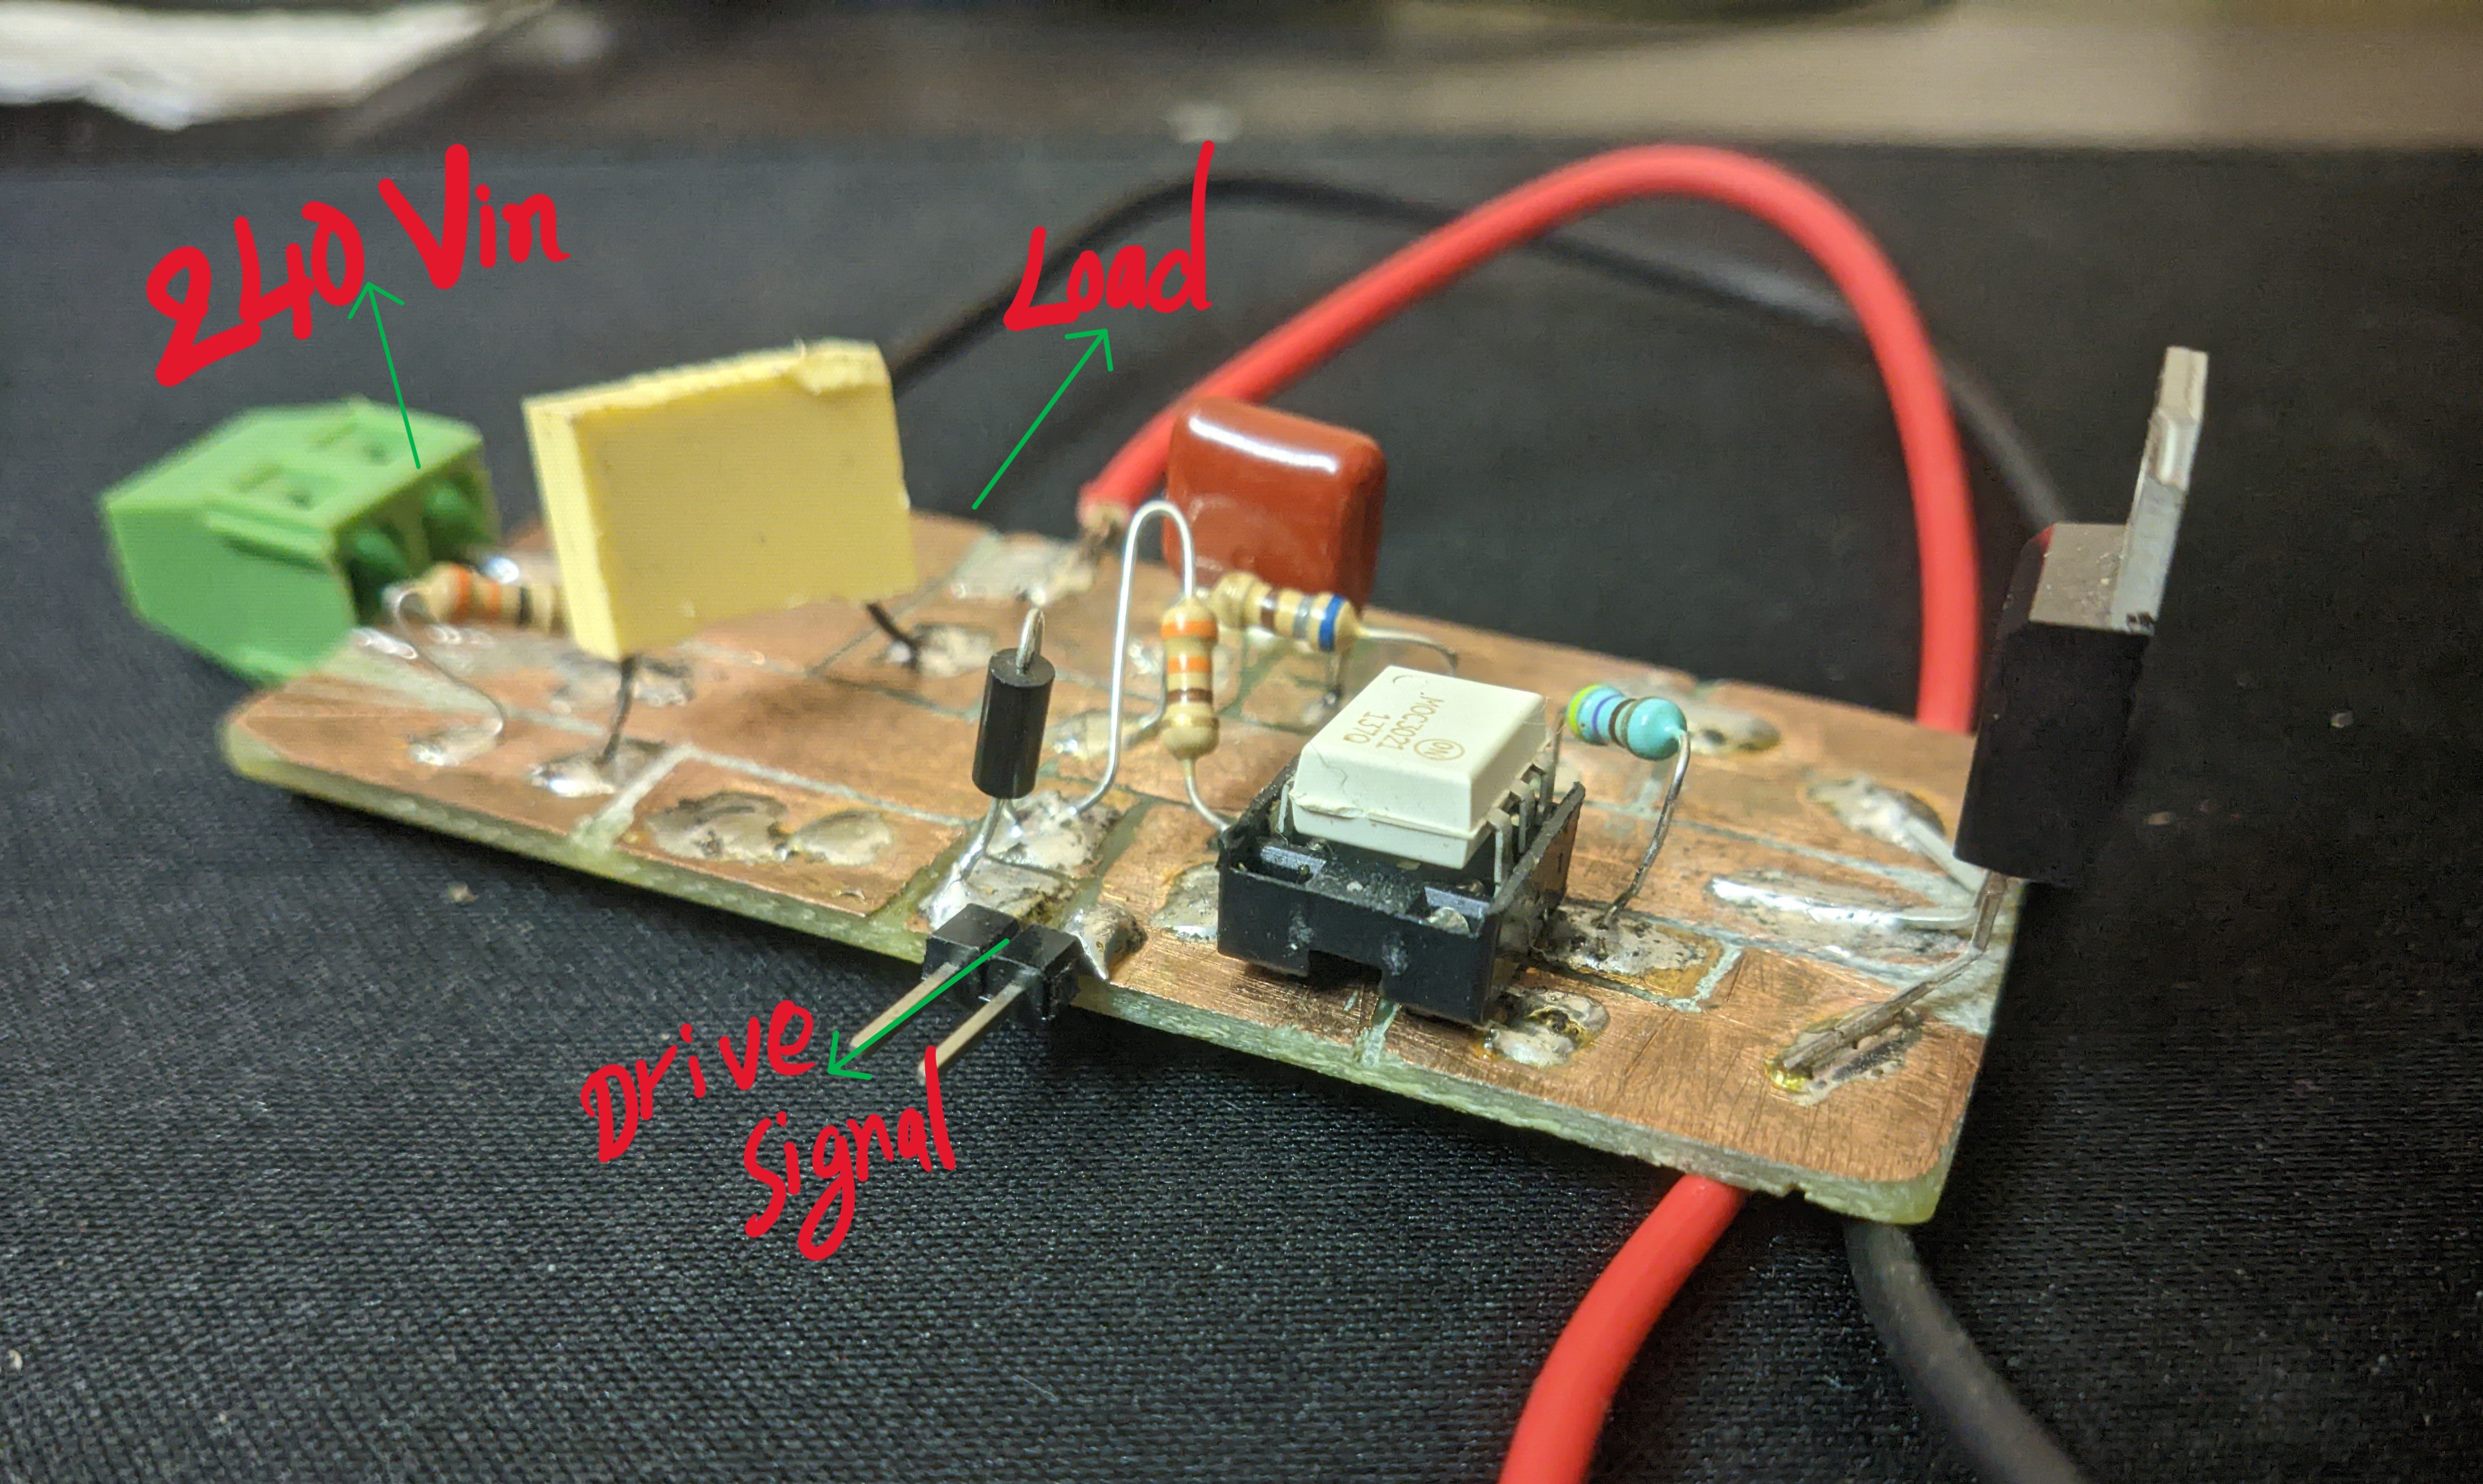 240 Vin
Load
MOC3021
137Q
ON
Drive
Signal